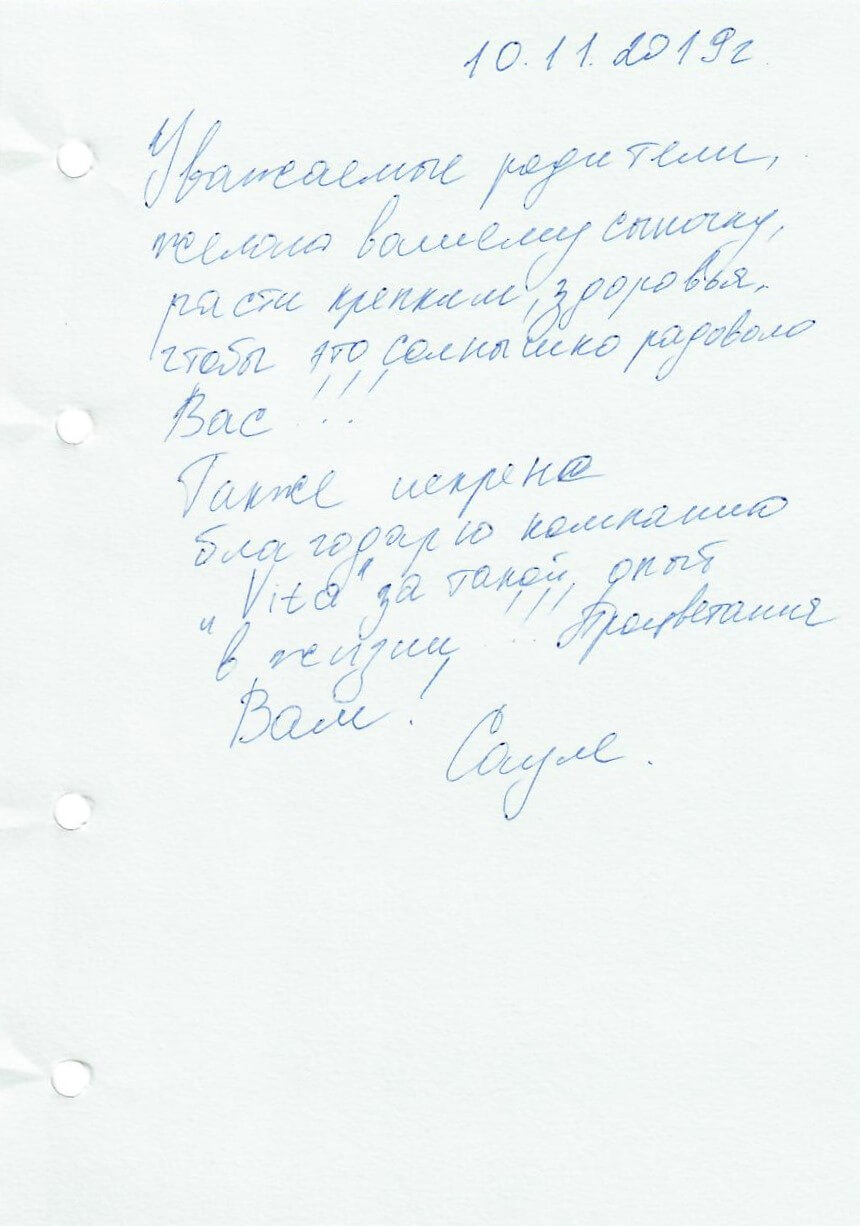 10.11.2019г.
Уважаемые родители,
желаю вашему сыночку,
расти крепким, здоровья,
чтобы это солнышко радовало
Вас !!!
Также искрене
благодарю компанию
"Vita" за такой опыт
в жизни !!! Процветания
Вам!
Сауле.